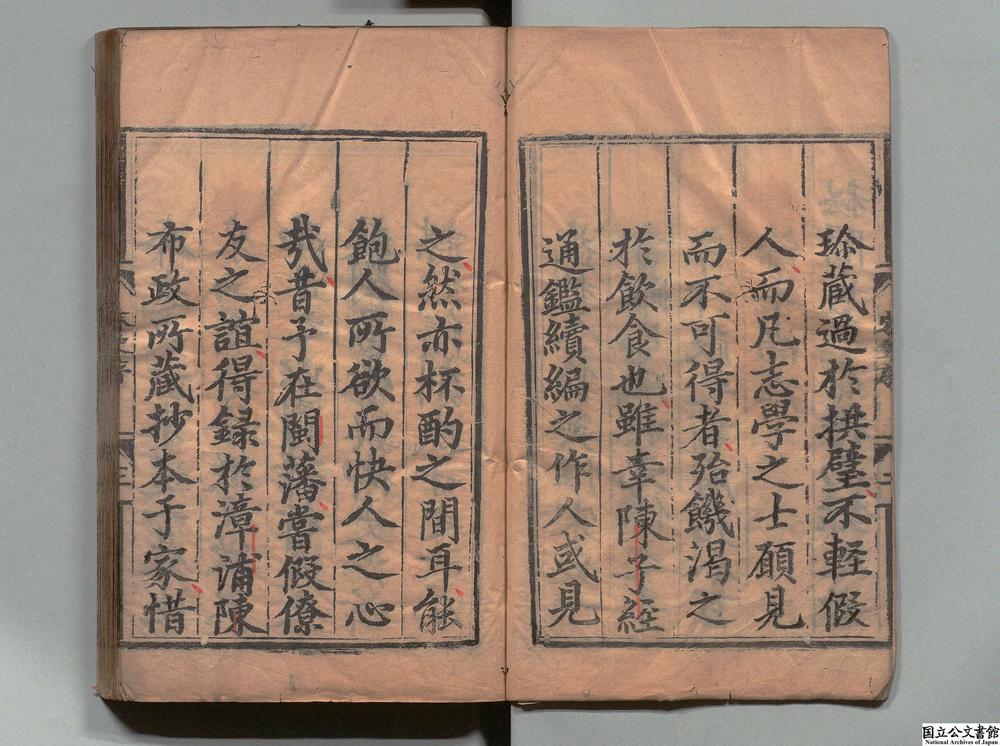 珍蔵過於拱璧不輕假
人而凡志學之士願見
而不可得者殆饑渴之
於飲食也雖幸陳子經
通鑑續編之作人或見
之然亦杯酌之間耳能
飽人所欲而快人之心
哉昔予在閩藩嘗假僚
友之誼得録於漳浦陳
布政所藏抄本于家惜
国立公文書館
National Archives of Japan